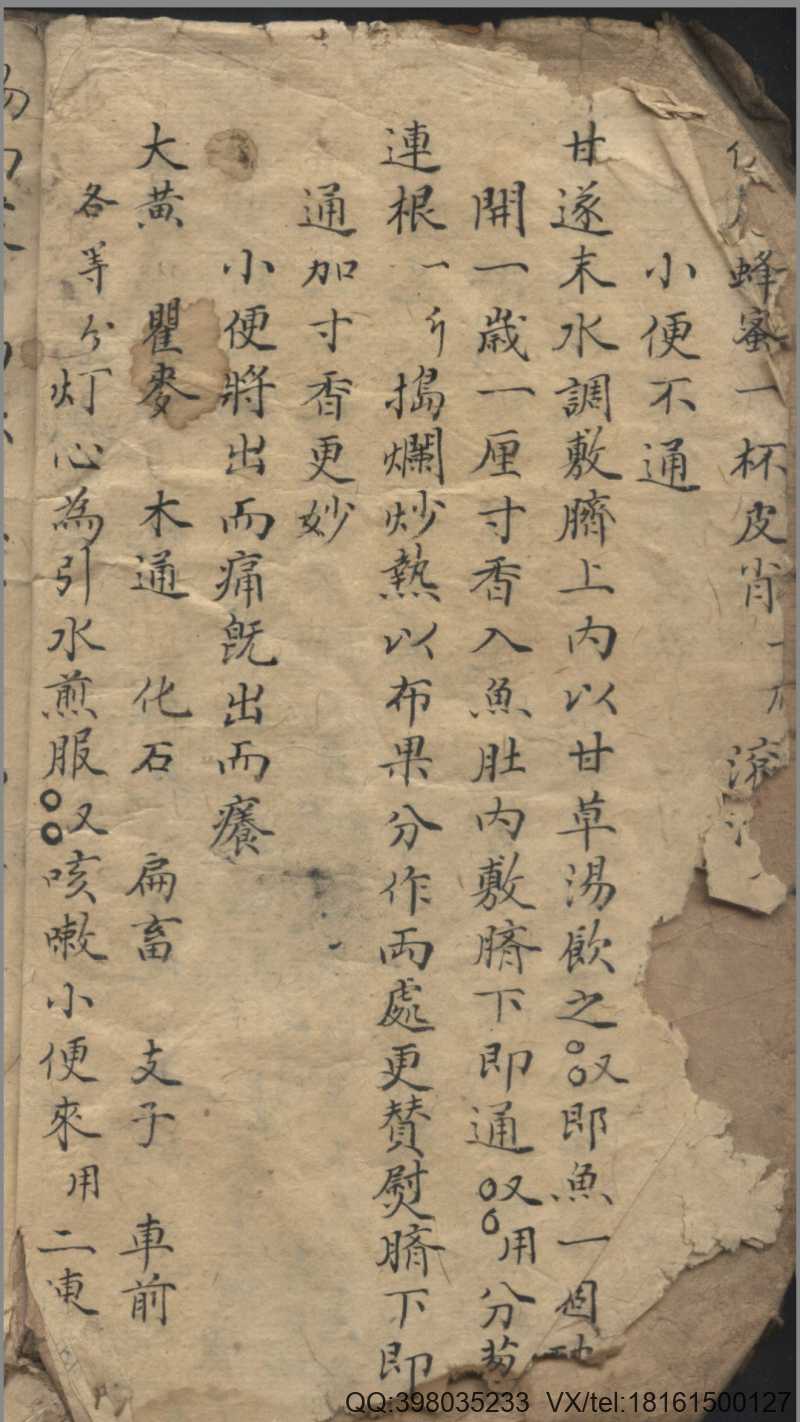 蜂蜜一杯皮肖一
小便不通
甘遂末水調敷臍上内以甘草湯飲之又即魚一個
開一歲一厘寸香入魚肚内敷臍下即通又用分葱
連根一斤搗爛炒熱以布果分作両處更賛熨臍下即
通加寸香更妙
小便將出而痛旣出而癢
大黃 瞿麥 木通 化石 扁畜 支子 車前
各等分灯心為引水煎服又咳嗽小便來用二
QQ:398035233 VX/tel:18161500127